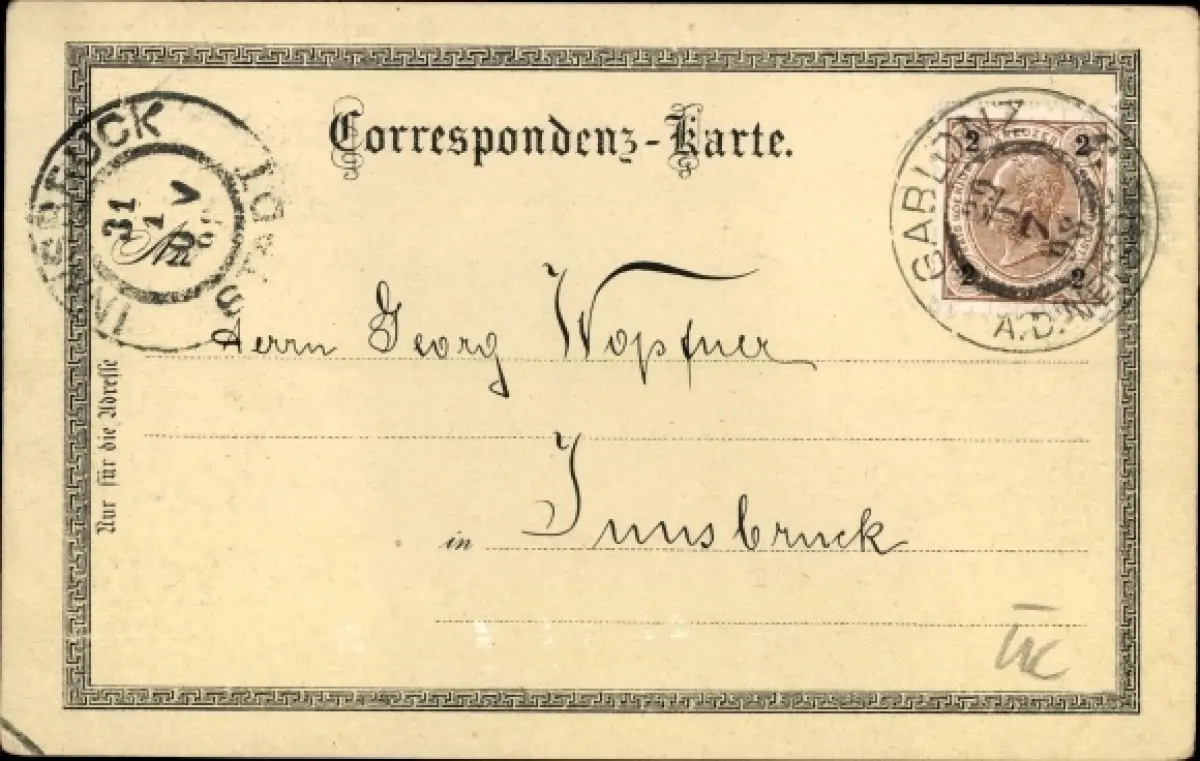 Correspondenz-Karte.
INNSBRUCK STADT
31
1
98
V
GABLONZ
A.D. NEISSE
2 KREUZER 2
2 2
Herrn Georg Wopfner
Nur für die Adresse
in Innsbruck